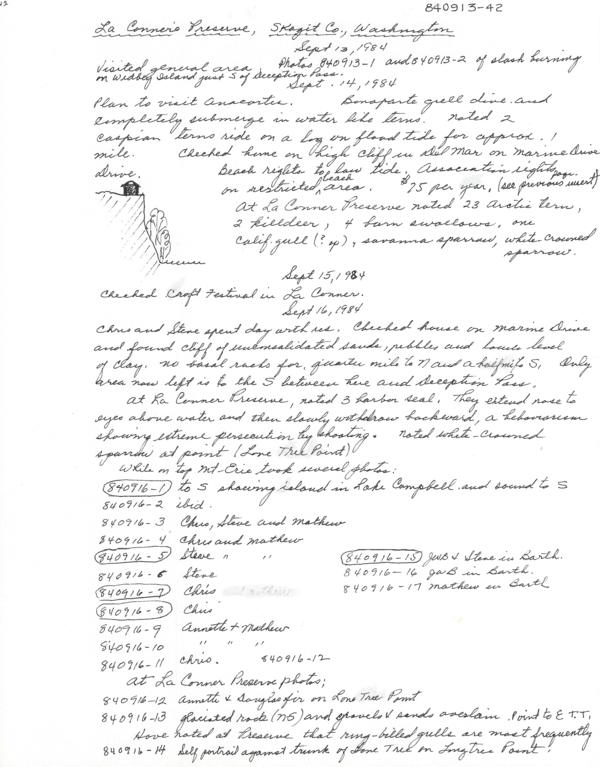 840913-42
La Conner's Preserve, Skagit Co., Washington
Sept 13, 1984
Visited general area. Photos 840913-1 and 840913-2 of slash burning
on Widbey Island just S of Deception Pass.
Sept. 14, 1984
Plan to visit Anacortes. Bonaparte gull dive and
completely submerge in water like terns. Noted 2
Caspian terns ride on a log on flood tide for approx. 1
mile. Checked home on high cliff in Del Mar on Marine Drive
drive. Beach rights to low tide, Association rights
on restricted beach area. $75 per year, (see previous page insert)
At La Conner Preserve noted 23 Arctic tern,
2 killdeer, 4 barn swallows, one
Calif. gull (? sp), savanna sparrow, white-crowned
sparrow.
Sept 15, 1984
Checked Craft Festival in La Conner.
Sept 16, 1984
Chris and Steve spent day with us. Checked house on Marine Drive
and found cliff of unconsolidated sands, pebbles and lower level
of clay. No basal rocks for quarter mile to N and a half mi to S. Only
area now left is to the S between here and Deception Pass.
At La Conner Preserve, noted 3 harbor seal. They extend nose to
eyes above water and then slowly withdraw backward, a behaviorism
showing extreme persecution by shooting. Noted white-crowned
sparrow at point (Lone Tree Point)
While on top Mt. Erie took several photos:
840916-1 to S showing island in Lake Campbell and sound to S
840916-2 ibid.
840916-3 Chris, Steve and Mathew
840916-4 Chris and Mathew
840916-5 Steve " "
840916-15 JWB & Steve in Barth.
840916-6 Steve
840916-16 JWB in Barth.
840916-7 Chris
840916-17 Mathew in Barth
840916-8 Chris
840916-9 Annette + Mathew
840916-10 " " "
840916-11 Chris. 840916-12
At La Conner Preserve photos;
840916-12 Annette & Douglas fir on Lone Tree Point
840916-13 glaciated rock (NS) and gravels & sands overlain. Point to E T.T.
Have noted at Preserve that ring-billed gulls are most frequently
840916-14 Self portrait against trunk of Lone Tree on Longtree Point.